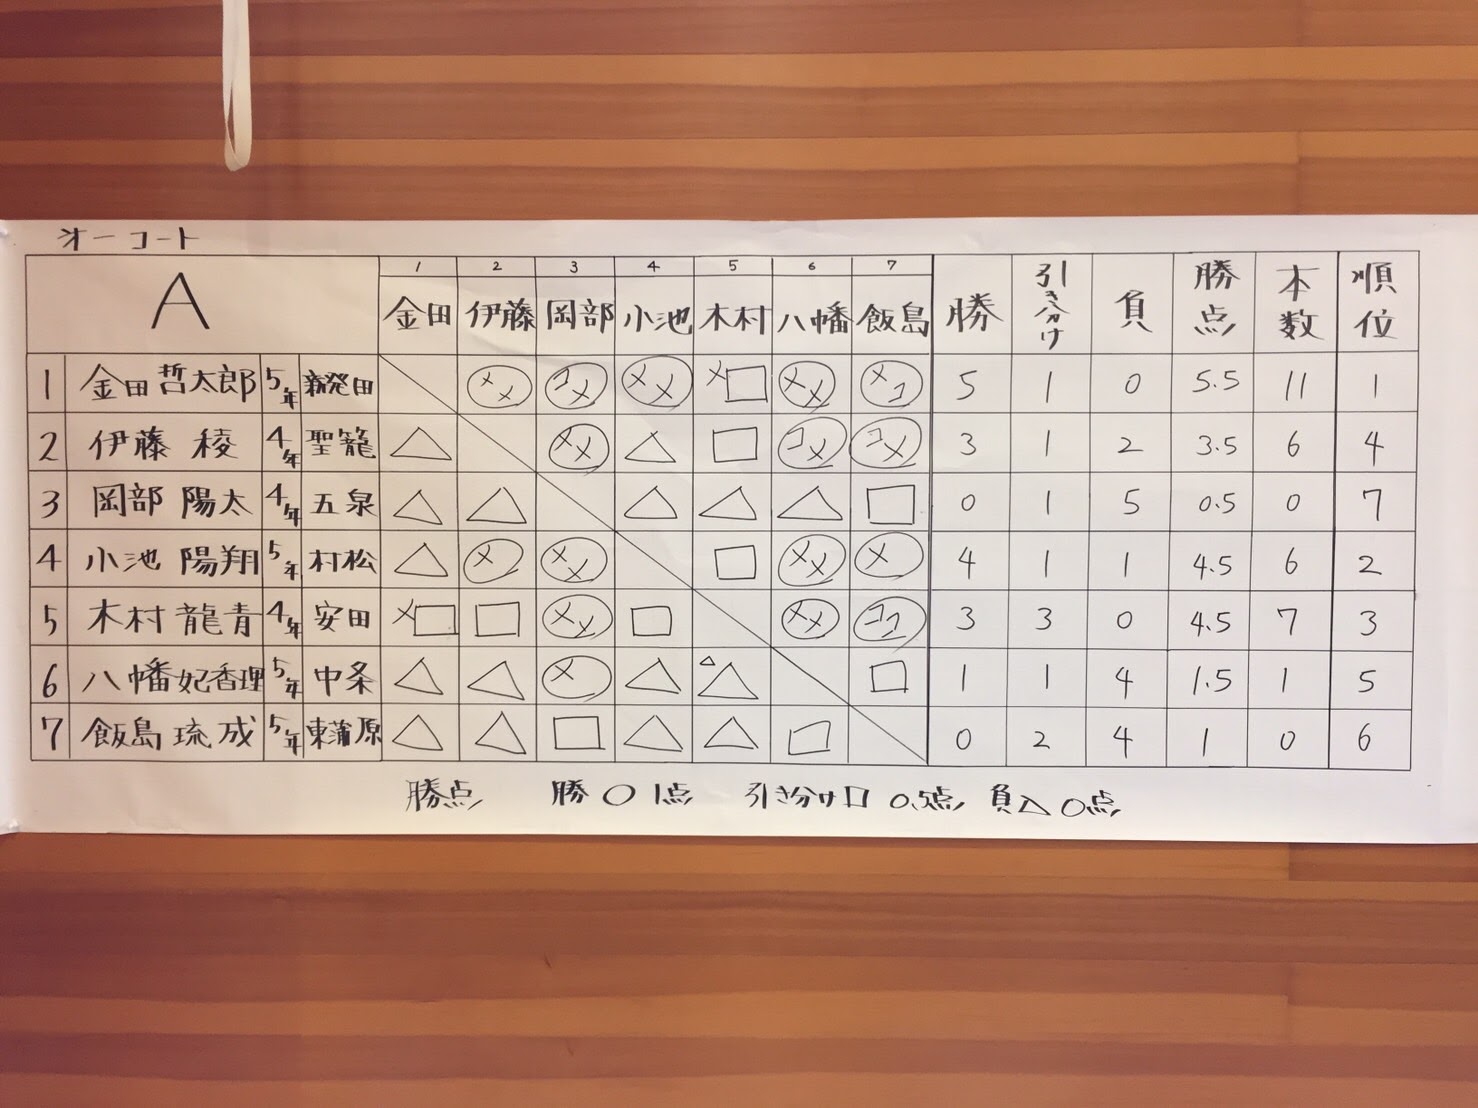 オーコート
A 1 2 3 4 5 6 7
金田 伊藤 岡部 小池 木村 八幡 飯島 勝 引き分け 負 勝点 本数 順位
1 金田 哲太郎 5年 新発田 メメ コメ メメ メ□ メメ メコ 5 1 0 5.5 11 1
2 伊藤 稜 4年 聖籠 △ メメ △ □ コメ コメ 3 1 2 3.5 6 4
3 岡部 陽太 4年 五泉 △ △ △ △ △ □ 0 1 5 0.5 0 7
4 小池 陽翔 5年 村松 △ メ メメ □ メメ メ 4 1 1 4.5 6 2
5 木村 龍青 4年 安田 メ□ □ メメ □ メメ ココ 3 3 0 4.5 7 3
6 八幡 妃香理 5年 中条 △ △ メ △ △△ □ 1 1 4 1.5 1 5
7 飯島 琉成 5年 東蒲原 △ △ □ △ △ □ 0 2 4 1 0 6
勝点 勝○1点 引き分け□0.5点 負△0点